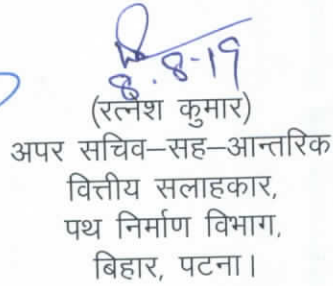 8.8-19
(रत्नेश कुमार)
अपर सचिव–सह–आन्तरिक
वित्तीय सलाहकार,
पथ निर्माण विभाग,
बिहार, पटना।